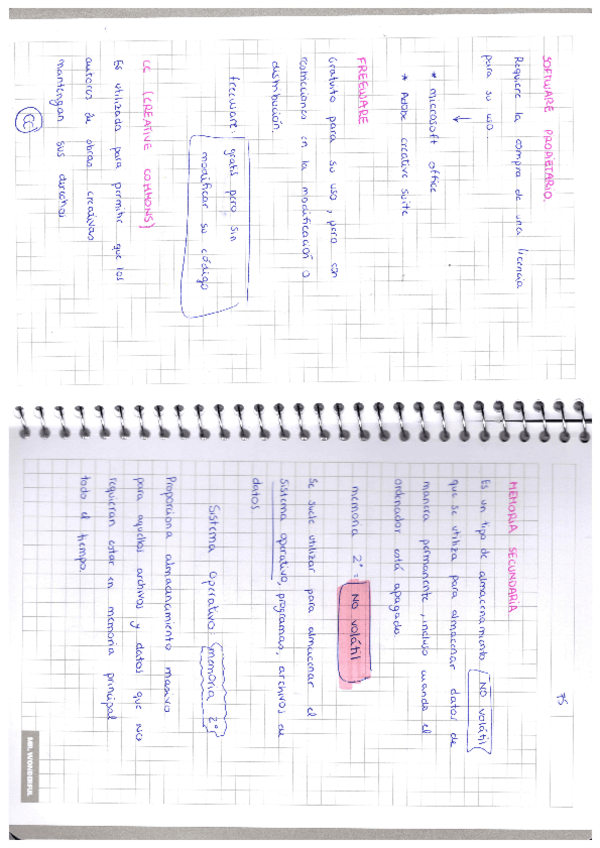 SOFTWARE PROPIETARIO.
Requiere la compra de una licencia
para su uso.
* microsoft office
* Adobe creative suite
FREEWARE
Gratuito para su uso, pero con
restricciones en la modificación o
distribución.
freeware: gratis pero sin
modificar su código
CC (CREATIVE COMMONS)
Es utilizada para permitir que los
autores de obras creativas
mantengan sus derechos
CC
75
MEMORIA SECUNDARIA
Es un tipo de almacenamiento NO volátil
que se utiliza para almacenar datos de
manera permanente, incluso cuando el
ordenador está apagado.
memoria 2ª = NO volátil
Se suele utilizar para almacenar el
sistema operativo, programas, archivos de
datos
Sistema Operativo: memoria 2ª
Proporciona almacenamiento masivo
para aquellos archivos y datos que no
requieran estar en memoria principal
todo el tiempo.
MR. WONDERFUL